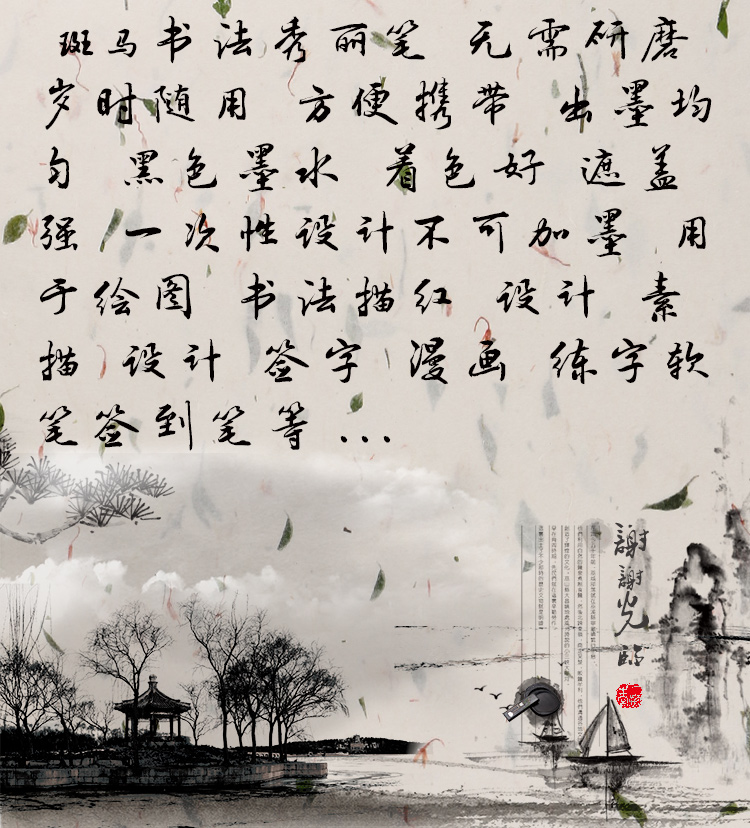 斑马书法秀丽笔 无需研磨
岁时随用 方便携带 出墨均
匀 黑色墨水 着色好 遮盖
强 一次性设计不可加墨 用
于绘图 书法描红 设计 素
描 设计 签字 漫画 练字软
笔签到笔等...
謝謝光臨